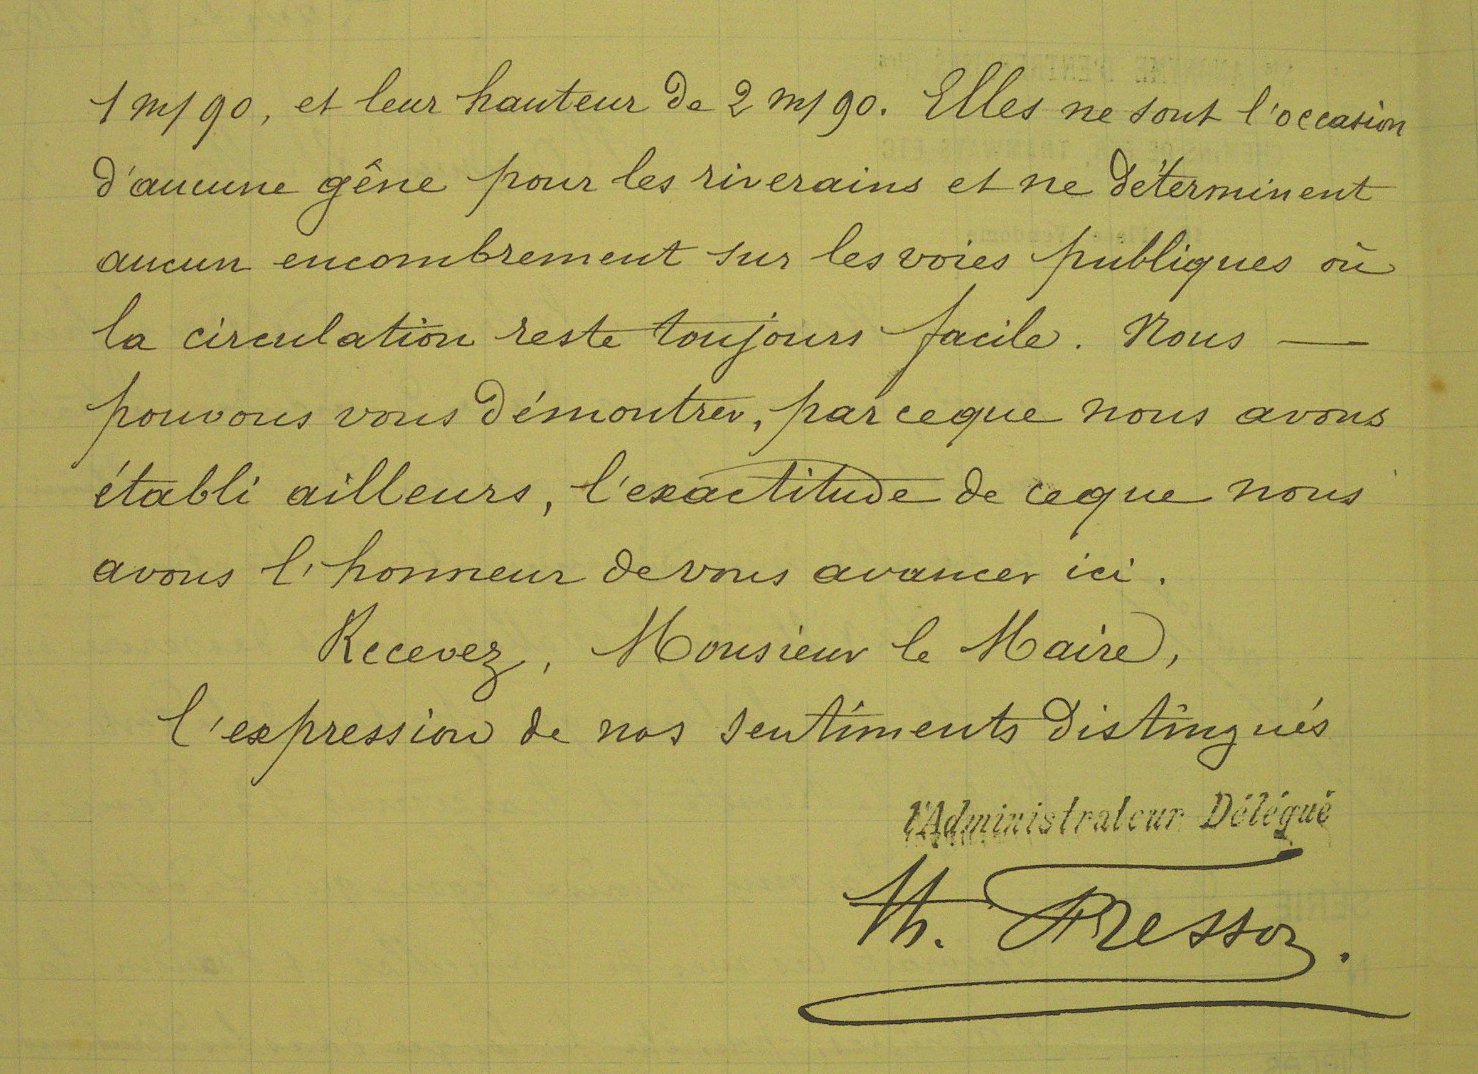 1 m/90, et leur hauteur de 2 m/90. Elles ne sont l'occasion
d'aucune gêne pour les riverains et ne déterminent
aucun encombrement sur les voies publiques où
la circulation reste toujours facile. Nous —
pouvons vous démontrer, parceque nous avons
établi ailleurs, l'exactitude de ceque nous
avons l'honneur de vous avancer ici.
Recevez, Monsieur le Maire,
l'expression de nos sentiments distingués
l'Administrateur Délégué
Th. Fresson.